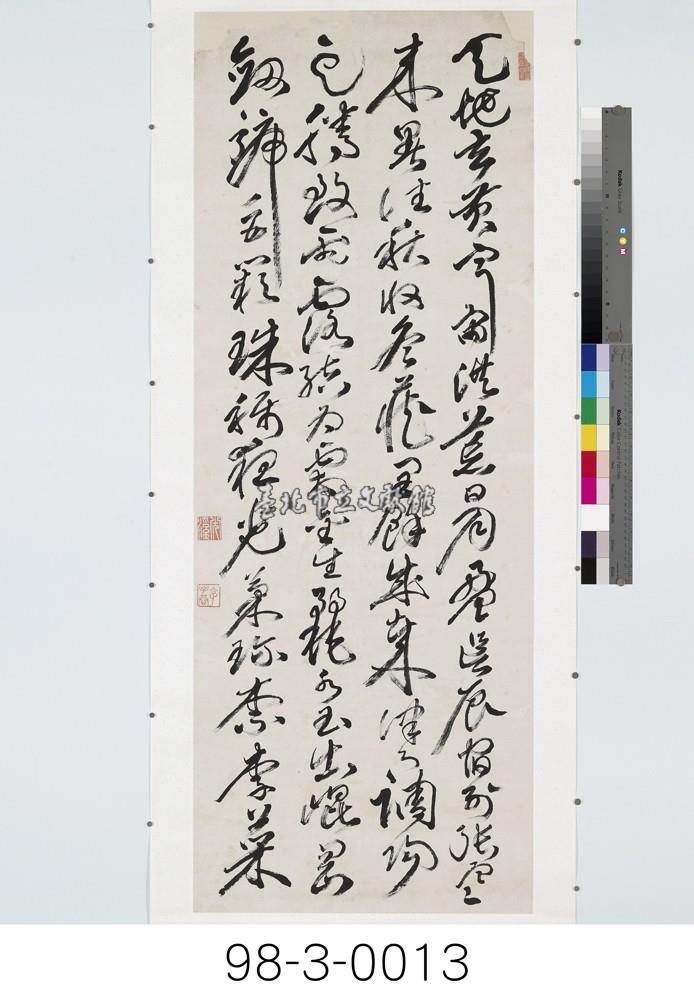 天地玄黃宇宙洪荒日月盈昃辰宿列張寒
來暑往秋收冬藏閏餘成歲律調陽
雲騰致雨露結為霜金生麗水玉出崐岡
劍號巨闕珠稱夜光菓珍柰李菜
臺北市立文獻館
Kodak Gray Scale
C Y M
Kodak Color Control Patches
98-3-0013